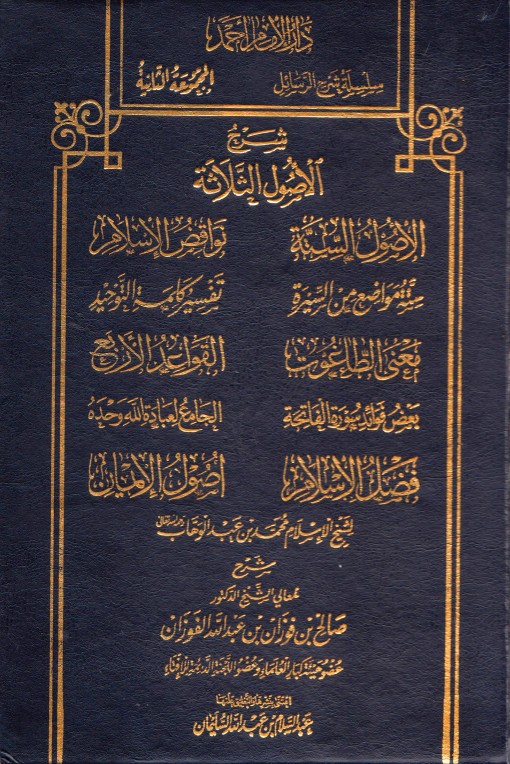 دار الإمام أحمد
سلسلة شرح الرسائل المجموعة الثانية
شرح
الأصول الثلاثة
الأصول الستة نواقض الإسلام
ستة مواضع من السيرة تفسير كلمة التوحيد
معنى الطاغوت القواعد الأربع
بعض فوائد سورة الفاتحة الجامع لعبادة الله وحده
فضل الإسلام أصول الإيمان
لشيخ الإسلام محمد بن عبد الوهاب رحمه الله تعالى
شرح
معالي الشيخ الدكتور
صالح بن فوزان بن عبد الله الفوزان
عضو هيئة كبار العلماء وعضو اللجنة الدائمة للإفتاء
اعتنى بنشرها والتعليق عليها
عبد السلام بن عبد الله السليمان